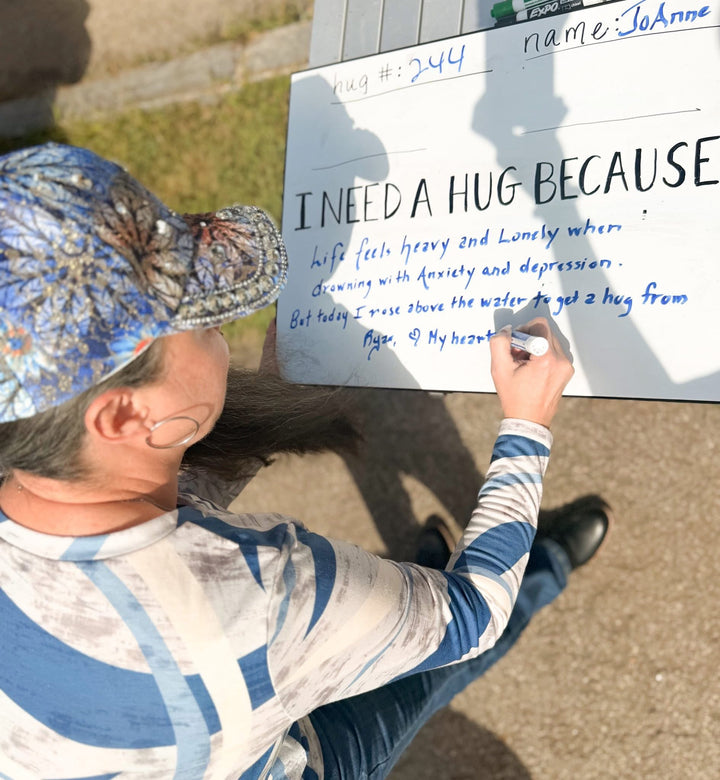 EXPO
hug #: 244
name: JoAnne
I NEED A HUG BECAUSE
Life feels heavy and Lonely when
drowning with Anxiety and depression.
But today I rose above the water to get a hug from
Ryan, ♡ My heart